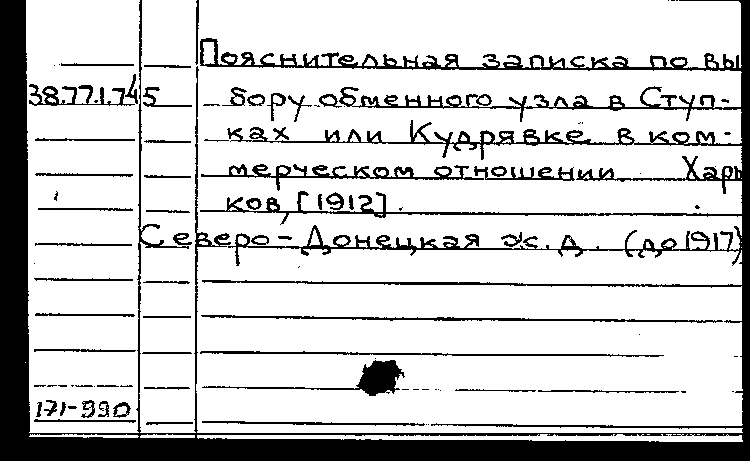 Пояснительная записка по вы
38.77.1.745 бору обменного узла в Ступ-
ках или Кудрявке в ком-
мерческом отношении Харь
ков, [1912].
Северо-Донецкая ж.д. (до 1917)
171-990